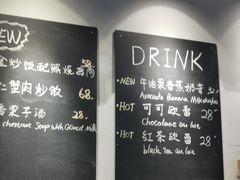 NEW
炒饭配照烧
58
蟹肉炒饭
68
果子汤
28
chestnut Soup with Coconut Milk
DRINK
NEW 牛油果香蕉奶昔
Avocado Banana Milkshake
HOT 可可欧蕾 28
Chocolate au lait
HOT 红茶欧蕾 28
black Tea au lait